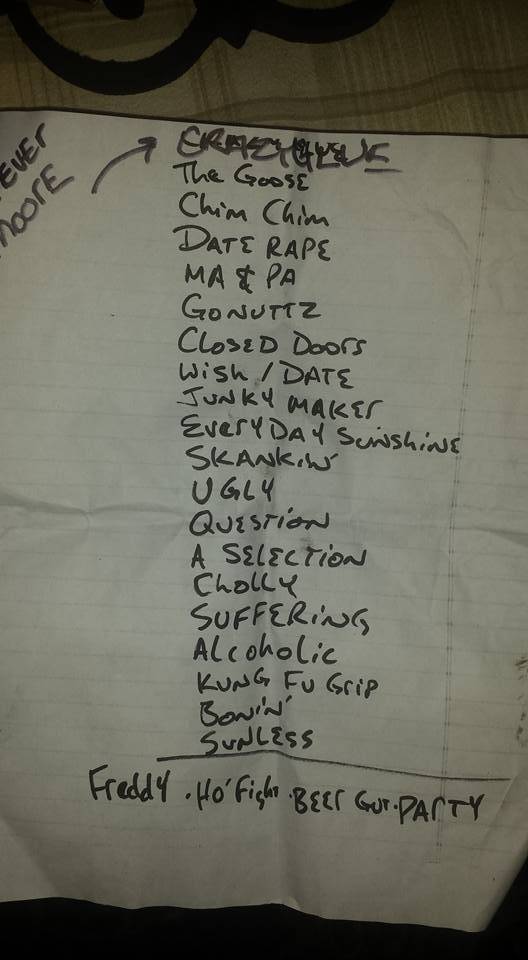 EVER
MOORE
The Goose
Chim Chim
DATE RAPE
MA & PA
GONUTTZ
CLOSED DOORS
WisH / DATE
JUNKY MAKER
EVERYDAY SUNSHINE
SKANKIN'
UGLY
QUESTION
A SELECTION
CHOLLY
SUFFERING
ALCOHOLIC
KUNG FU GRIP
BONIN'
SUNLESS
FREDDY . HO' FIGHT . BEER GUT . PARTY